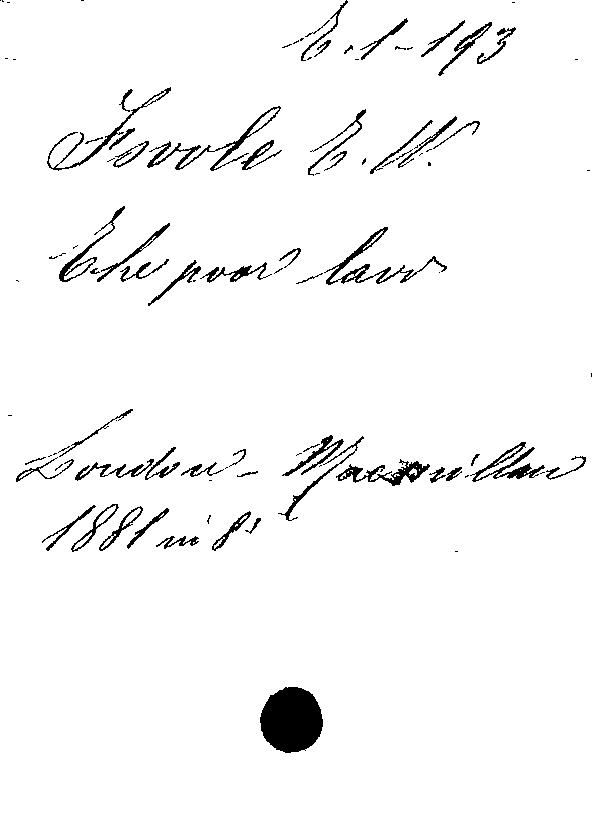 T.1-193
Fowle T. W.
The poor law
London - Macmillan
1881 in 8°